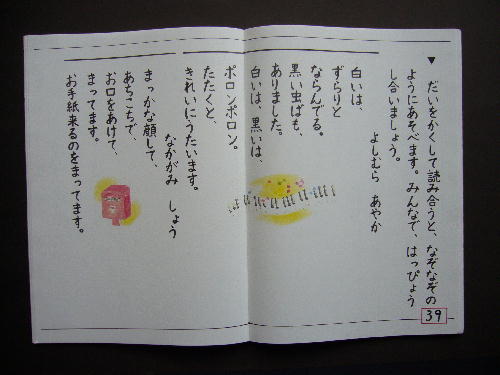 ▼ だいをかくして読み合うと、なぞなぞの
ようにあそべます。みんなで、はっぴょう
し合いましょう。
よしむら あやか
白いは、
ずらりと
ならんでる。
黒い虫ばも、
ありました。
白いは、黒いは、
ポロンポロン。
たたくと、
きれいにうたいます。
ながみ しょう
まっかな顔して、
あちこちで、
お口をあけて、
まってます。
お手紙来るのをまってます。
39